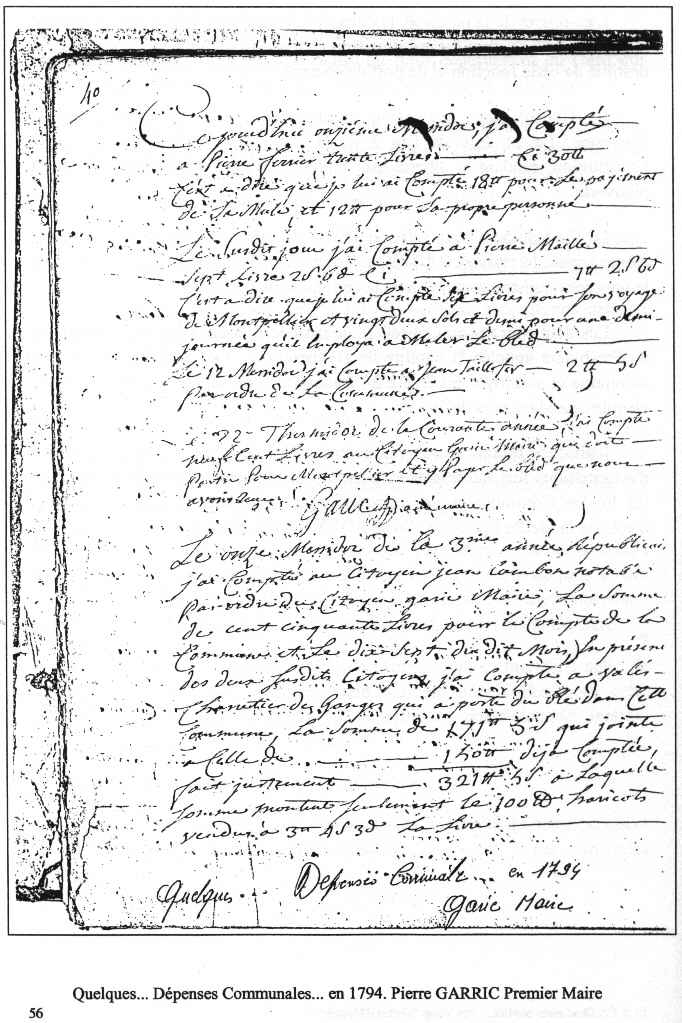 40
Cejourd'hui onzieme Messidor, j'ai Compté
a Pierre ferrier trente Livres Ci 30tt
c'est a dire que je lui ai Compté 18tt pour Le payement
de Sa Mule et 12tt pour Sa propre personne
Le Susdit jour j'ai Compté à Pierre Maillé
Sept Livre 2S 6d Ci 7tt 2S 6d
c'est a dire que je lui ai Compté Six Livres pour Son voyage
de Montpellier et vingt deux Sols et demi pour une demi-
journée qu'il Employa à Meler Le bléd
Le 12 Messidor j'ai Compté a Jean Taillefer 2tt 5S
Par ordre de La Commune
Thermidor de la Courante année j'ai Compté
neuf Cent Livres au Citoyen Garic Maire qui doit
Partir Pour Montpelier et payer Le bléd que nous
avons
Garic maire
Le onze Messidor de la 3me année Républicai.
j'ai Compté au Citoyen jean Cambon notable
Par ordre du Citoyen garic Maire La Somme
de cent cinquante Livres pour le Compte de la
Commune et Le dix Sept du dit Mois, En présen
des deux Susdits Citoyens j'ai Compté a valés
Charretier des Ganges qui a porté du blé dans Cette
Commune, La Somme de 171tt 5S qui jointe
a Celle de 150tt déja Comptée,
fait justement 321tt 5S à Laquelle
Somme montent Seulement le 100 haricots
vendus à 3tt 4S 3d La Livre
Quelques... Depenses Communale... en 1794
Garic Maire
Quelques... Dépenses Communales... en 1794. Pierre GARRIC Premier Maire
56